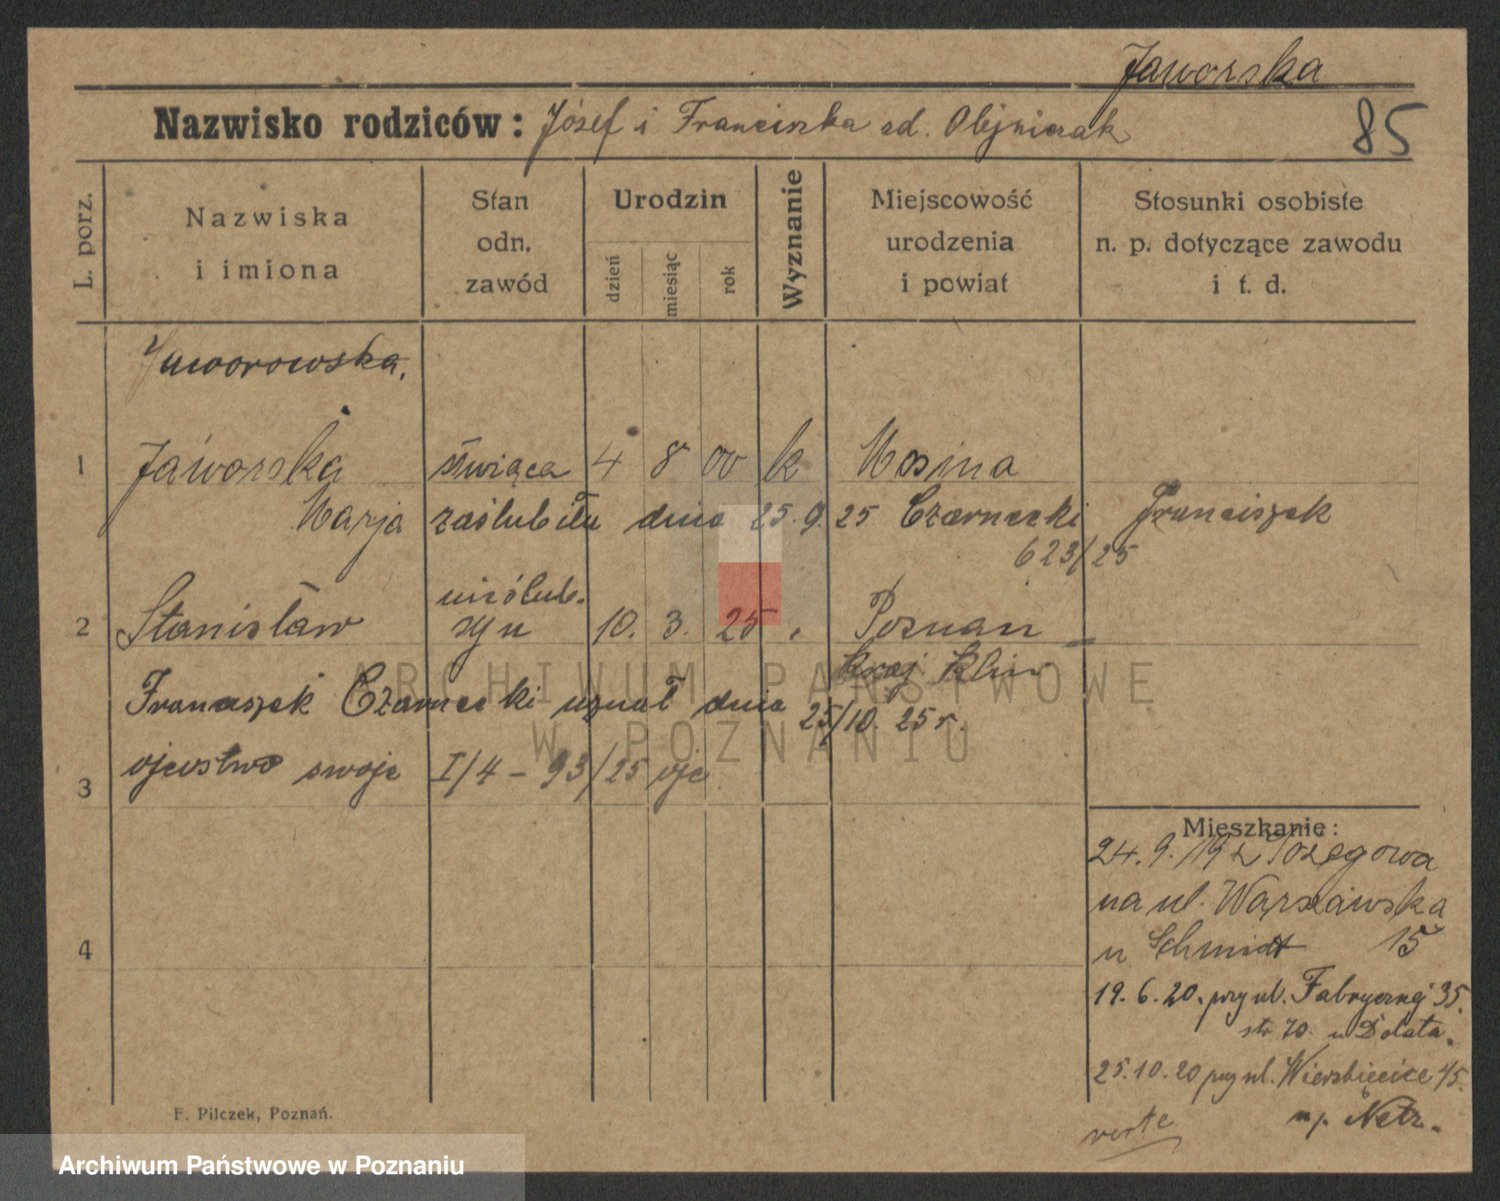 Jaworska
Nazwisko rodziców: Józef i Franciszka zd. Olejniczak
85
L. porz.
Nazwiska i imiona
Stan odn. zawód
Urodzin
dzień
miesiąc
rok
Wyznanie
Miejscowość urodzenia i powiat
Stosunki osobiste n. p. dotyczące zawodu i t. d.
Jaworowska.
1 Jaworska służąca 4 8 00 k Mosina
Marja zaślubiła dnia 25. 9. 25 Czarnecki Franciszek
623/25
nieślub.
2 Stanisław syn 10. 3. 25 Poznań
kraj. Klin
Franciszek Czarnecki uznał dnia 25/10. 25 r.
3 ojcostwo swoje I/4 - 93/25 ojc
4
Mieszkanie:
24. 9. 19 z
na ul. Warszawska
u Schmidt 15
19. 6. 20. przy ul. Fabrycznej 35.
70. u Dolata.
25. 10. 20 przy ul. Wierzbięcice 45.
verte
F. Pilczek, Poznań.
ARCHIWUM PAŃSTWOWE
W POZNANIU
Archiwum Państwowe w Poznaniu